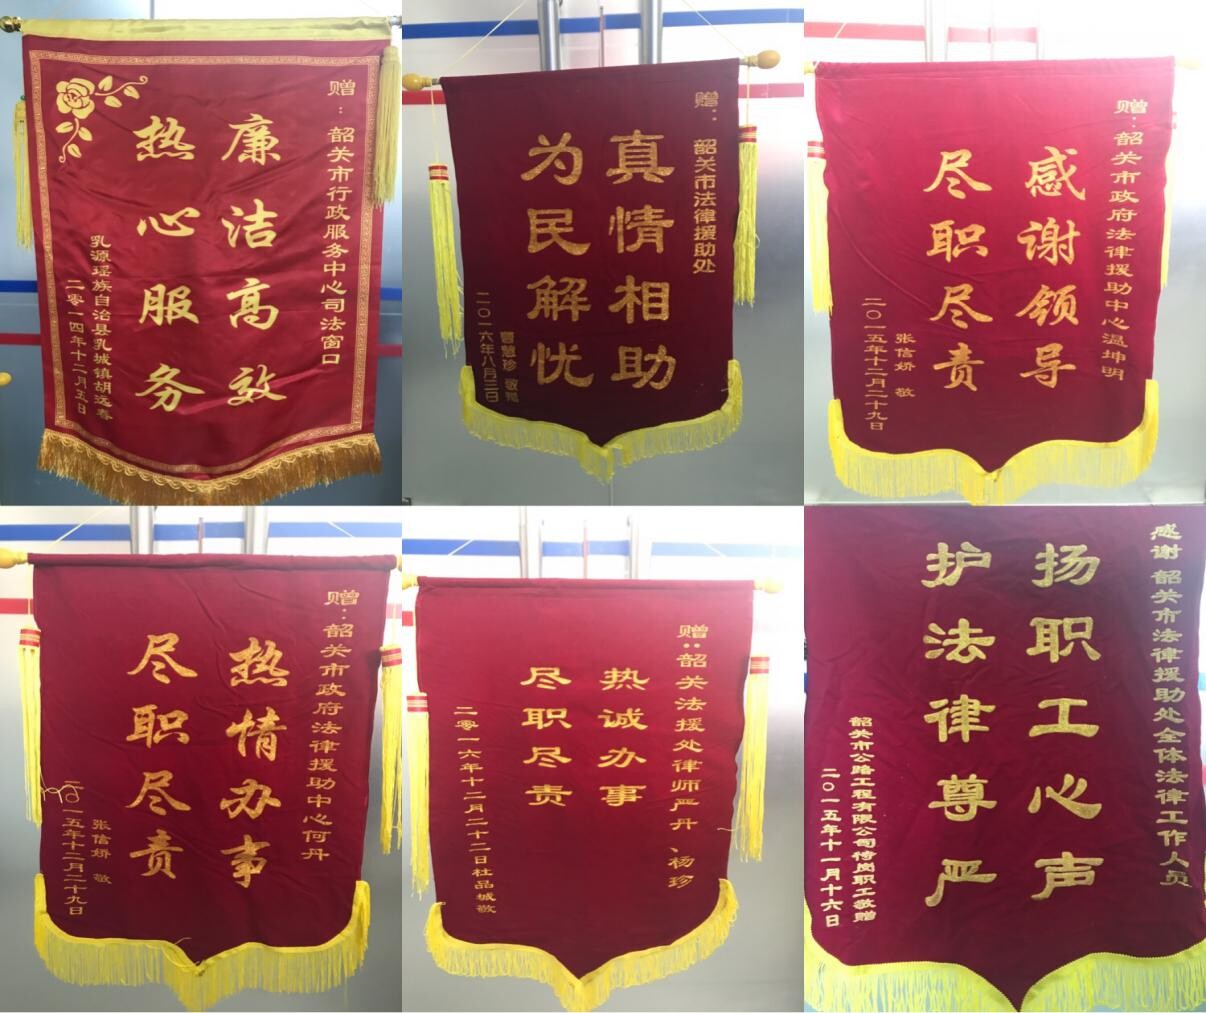 赠：韶关市行政服务中心司法窗口
廉洁高效
热心服务
乳源瑶族自治县乳城镇胡远春
二零一四年十二月五日
赠：韶关市法律援助处
真情相助
为民解忧
曹慧珍 敬赐
二〇一六年八月三日
赠：韶关市政府法律援助中心温坤明
感谢领导
尽职尽责
张信娇 敬
二〇一五年十二月二十九日
赠：韶关市政府法律援助中心何丹
热情办事
尽职尽责
张信娇 敬
二〇一五年十二月二十九日
赠：韶关法援处律师严丹、杨珍
热诚办事
尽职尽责
二零一六年十二月二十二日社品城敬
感谢韶关市法律援助处全体法律工作人员
扬职工心声
护法律尊严
韶关市公路工程有限公司待岗职工敬赠
二〇一五年十一月十六日